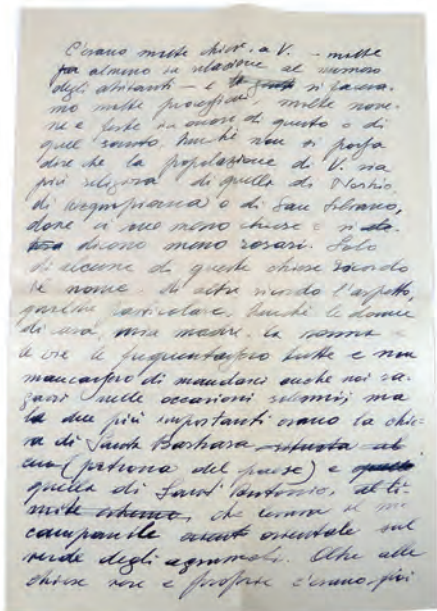 C'erano molte chiese a V. – molte
almeno in relazione al numero
degli abitanti – e si faceva-
no molte processioni, molte nove-
ne e feste in onore di questo o di
quel santo, benché non si possa
dire che la popolazione di V. sia
più religiosa di quella di
di Acquapiana o di San Silvano,
dove ci sono meno chiese e si
dicono meno rosari. Solo
di alcune di queste chiese ricordo
il nome, di altre ricordo l'aspetto,
qualche particolare, benché le donne
di casa, mia madre, la nonna e
le zie le frequentassero tutte e non
mancassero di mandarci anche noi ra-
gazzi nelle occasioni solenni; ma
le due più importanti erano la chie-
sa di Santa Barbara situata al
(patrona del paese) e
quella di Sant'Antonio, al li-
mite estremo, che levava il suo
campanile orientale sul
verde degli agrumeti. Oltre alle
chiese vere e proprie c'erano, poi